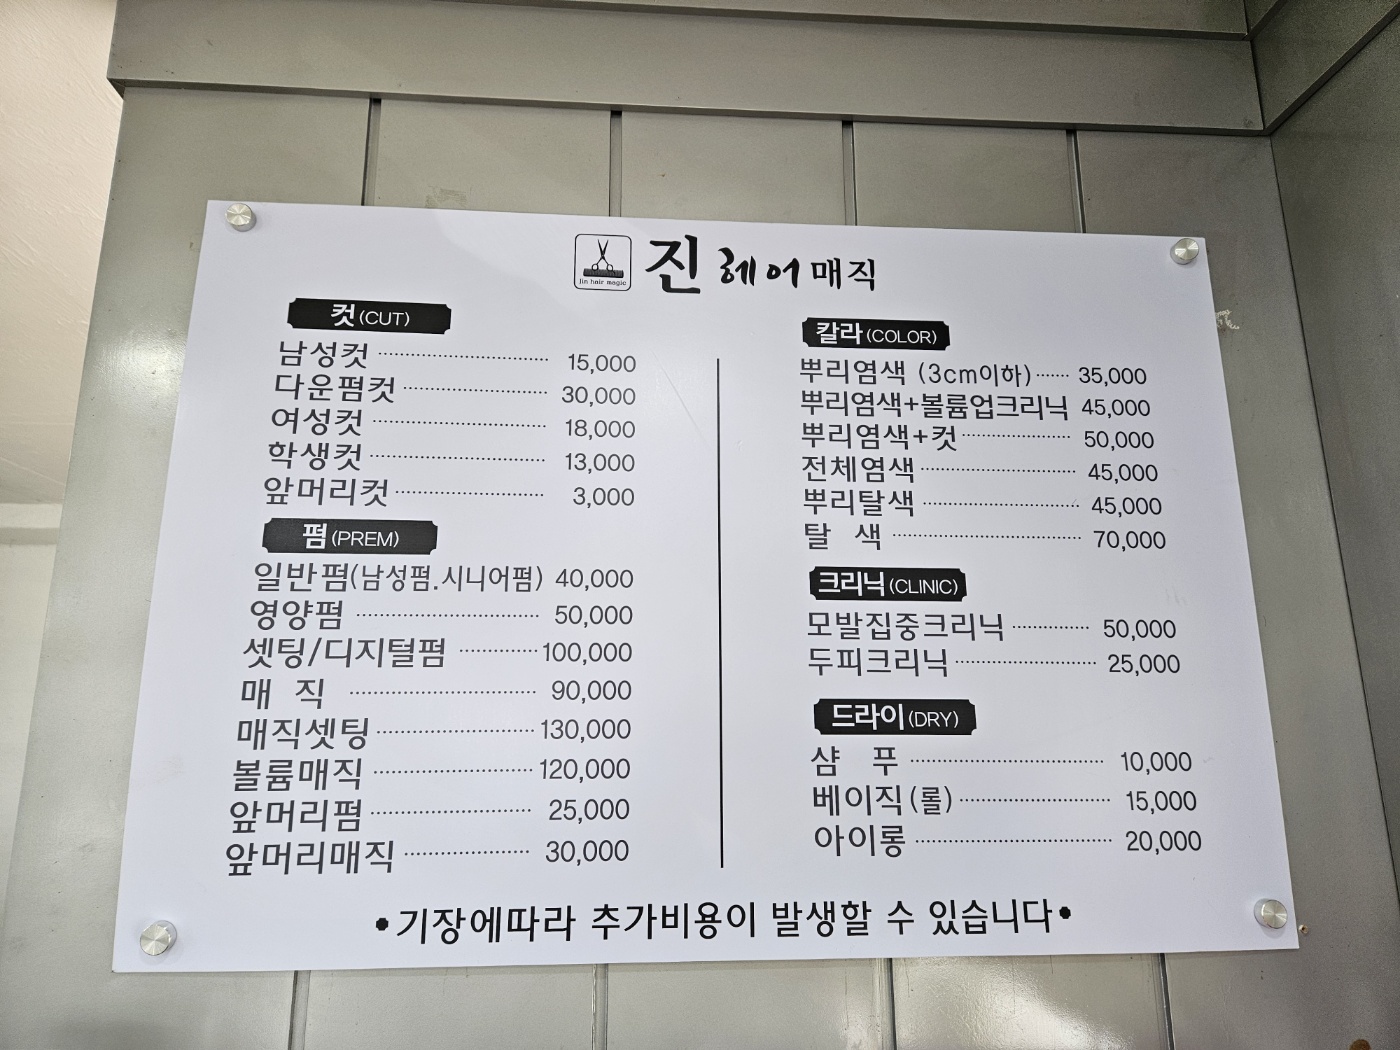 Jin hair magic
진 헤어 매직
컷(CUT)
남성컷 15,000
다운펌컷 30,000
여성컷 18,000
학생컷 13,000
앞머리컷 3,000
펌(PREM)
일반펌(남성펌.시니어펌) 40,000
영양펌 50,000
셋팅/디지털펌 100,000
매 직 90,000
매직셋팅 130,000
볼륨매직 120,000
앞머리펌 25,000
앞머리매직 30,000
칼라(COLOR)
뿌리염색 (3cm이하) 35,000
뿌리염색+볼륨업크리닉 45,000
뿌리염색+컷 50,000
전체염색 45,000
뿌리탈색 45,000
탈 색 70,000
크리닉(CLINIC)
모발집중크리닉 50,000
두피크리닉 25,000
드라이(DRY)
샴 푸 10,000
베이직(롤) 15,000
아이롱 20,000
•기장에따라 추가비용이 발생할 수 있습니다•